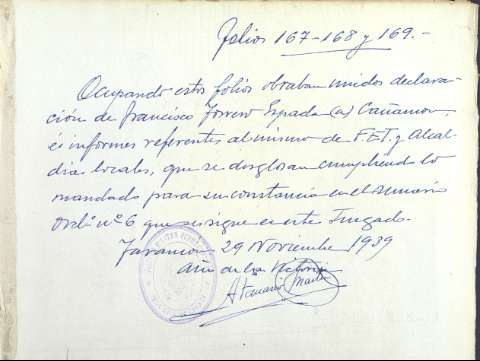 Folios 167-168 y 169.-
Ocupando estos folios obraban unidos declara-
ción de Francisco Forrero Espada (a) Cañamon,
é informes referentes al mismo de F.E.T. y Alcal-
día locales, que se desglosan cumpliendo lo
mandado para su constancia en el sumario
Ordº nº 6 que se sigue en este Juzgado.
Tarancon 29 Noviembre 1939
Año de la Victoria
Atanasio